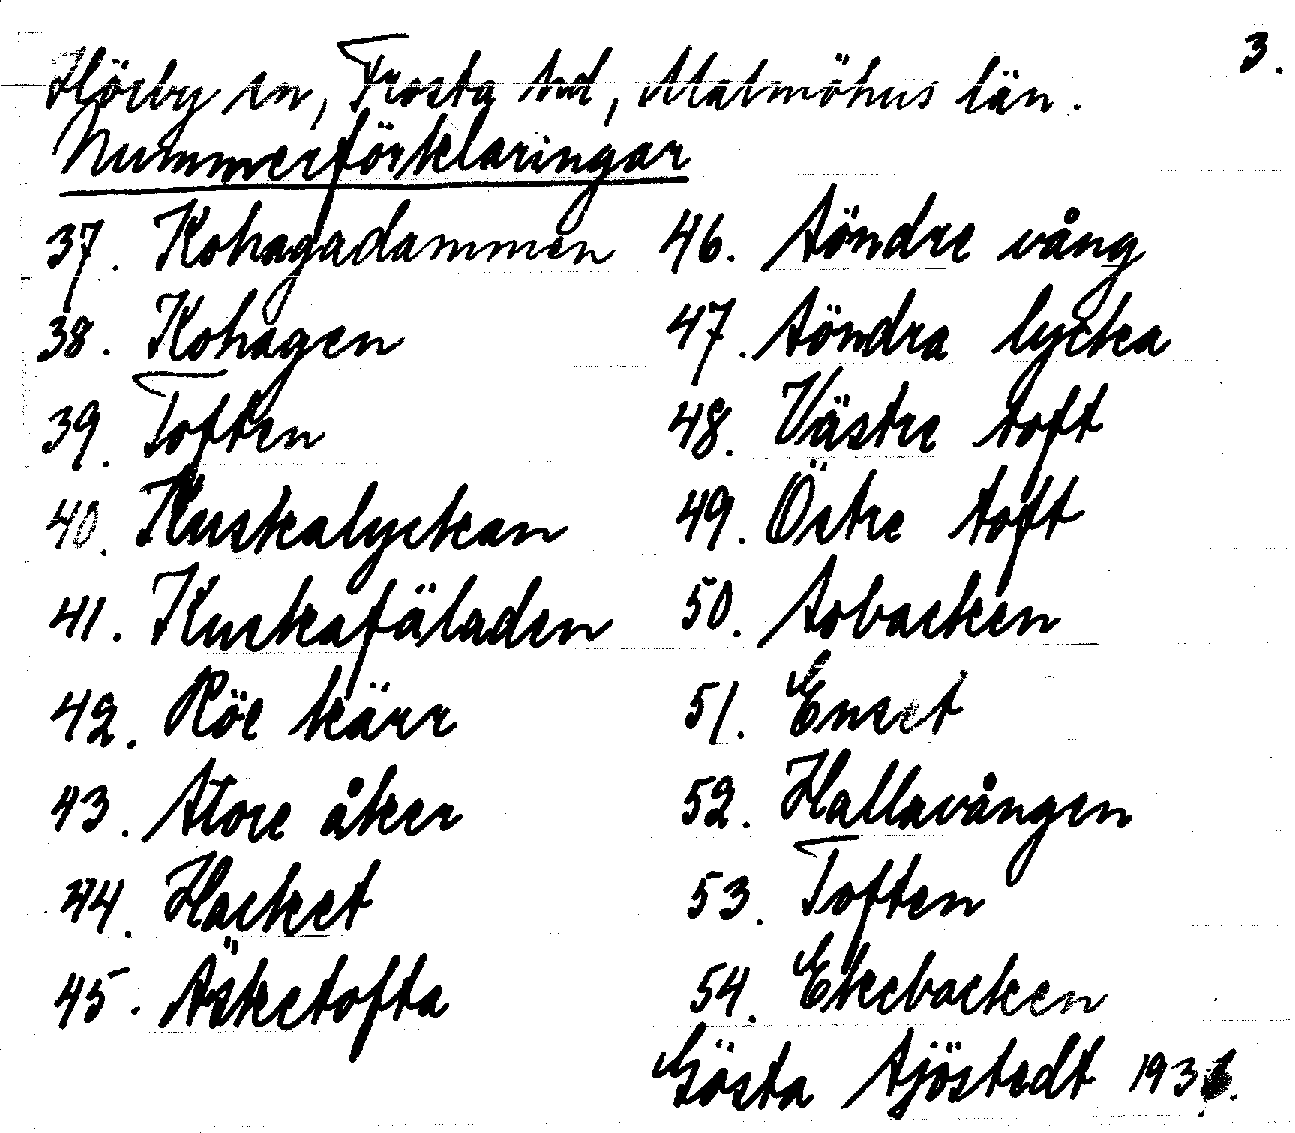 3.
Hörby sn, Frosta hd, Malmöhus län.
Nummerförklaringar
37. Kohagadammen
38. Kohagen
39. Toften
40. Kuskalyckan
41. Kuskafäladen
42. Röe kärr
43. Store åker
44. Hacket
45. Äsketofta
46. Söndre vång
47. Söndra lycka
48. Västre toft
49. Östre toft
50. Sobacken
51.
52. Hallavången
53. Toften
54. Ekebacken
Gösta Sjöstedt